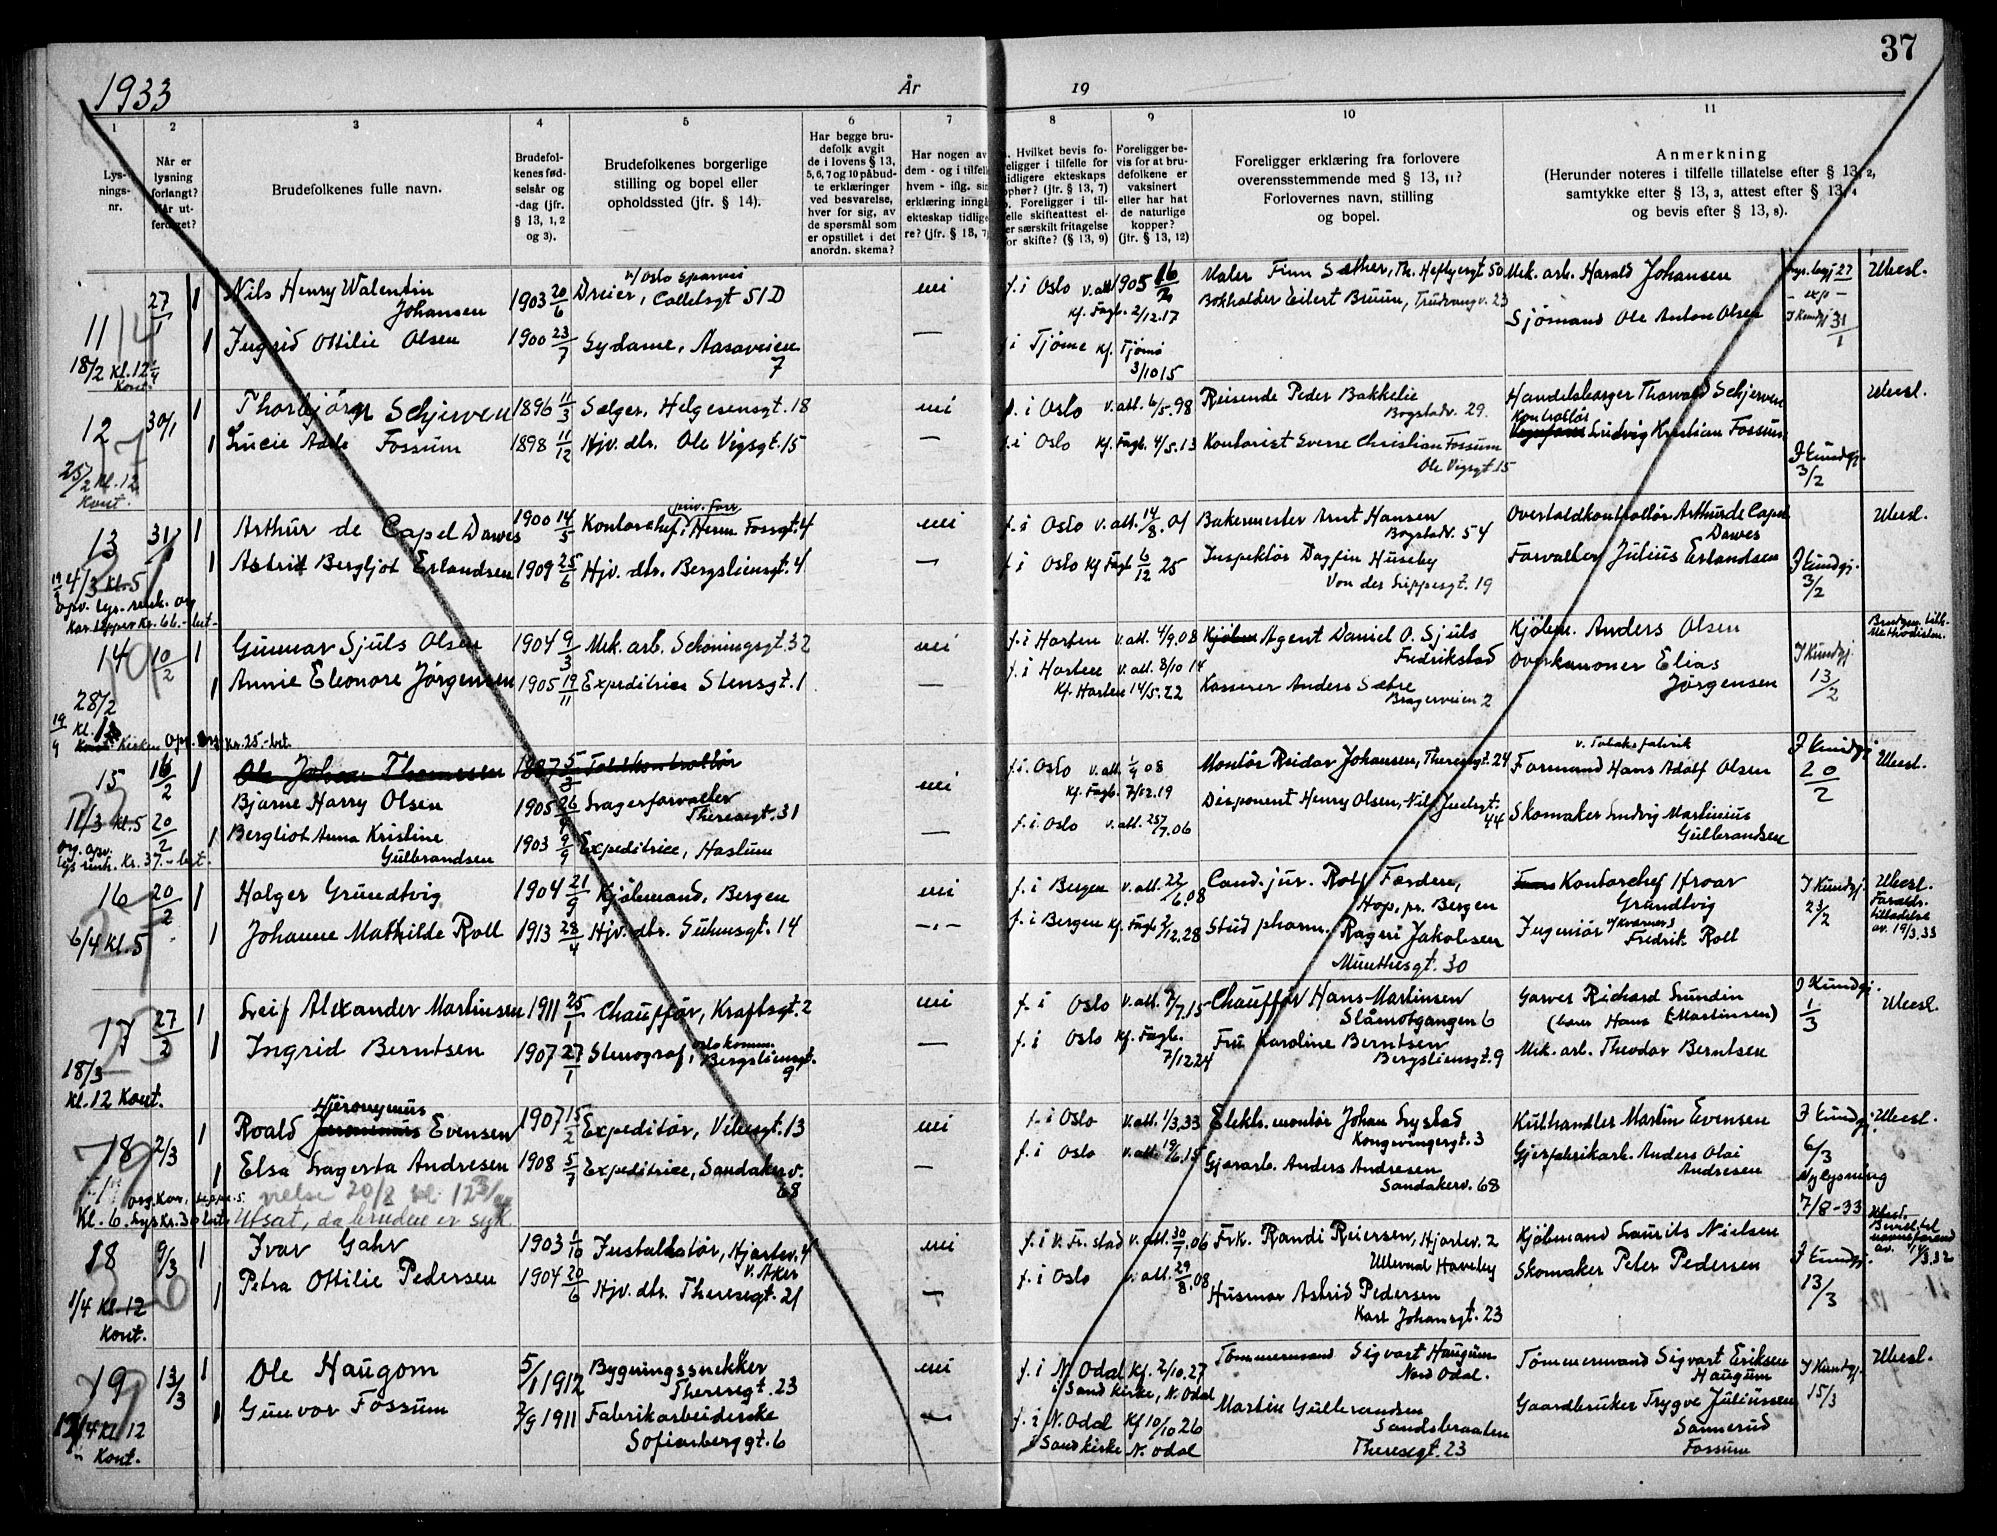 37
1933
År
19
1
2
3
4
5
6
7
8
9
10
11
Lys-
nings-
nr.
Når er
lysning
forlangt?
Når ut-
ferdiget?
Brudefolkenes fulle navn.
Brudefol-
kenes fød-
selsår og
-dag (jfr.
§ 13, 1, 2
og 3).
Brudefolkenes borgerlige
stilling og bopel eller
opholdssted (jfr. § 14).
Har begge bru-
defolk avgitt
de i lovens § 13,
5, 6, 7 og 10 påbud-
te erklæringer
ved besvarelse,
hver for sig, av
de spørsmål som
er opstillet i det
anordn. skema?
Har nogen av
dem - og i tilfelle
hvem - iflg. sin
erklæring inngå
ekteskap tidlige
re? (jfr. § 13, 7)
Hvilket bevis fo-
religger i tilfelle for
tidligere ekteskaps
ophør? (jfr. § 13, 7)
Foreligger i til-
felle skifteattest el-
er særskilt fritagelse
for skifte? (§ 13, 9)
Foreligger be-
vis for at bru-
defolkene er
vaksinert
eller har hat
de naturlige
kopper?
(jfr. § 13, 12)
Foreligger erklæring fra forlovere
overensstemmende med § 13, 11?
Forlovernes navn, stilling
og bopel.
Anmerkning
(Herunder noteres i tilfelle tillatelse efter § 13, 2,
samtykke efter § 13, 3, attest efter § 13, 4
og bevis efter § 13, 8).
11 27/1 1 Nils Henry Walentin
Johansen 1903 20/6 Dreier, Colletsgt 51 D nei f. i Oslo v. att 1905 16/2 Maler Finn Sæther, Th. Heftyesgt 50 Mek. arb. Harald Johansen Ubesl.
Kf. Fagb. 2/12.17 Bokholder Eilert Bruun, Trudvangv. 23
1 Ingrid Ottilie Olsen 1900 23/7 Sydame, Aasaveien
7 — f. i Tjøme Kf. Tjømø
3/10 15 Sjømand Ole Anton Olsen 31/1
18/2 Kl. 12
Kont.
12 30/1 1 Thorbjørn Schjerven 1896 11/3 Sælger, Helgesensgt. 18 nei f. i Oslo v. att. 6/5.98 Reisende Peder Bakkelie
Bogstadv. 29. Handelsborger Thorvald Schjerven Ubesl.
1 Lucie Adele Fossum 1898 11/12 Hjv. dtr. Ole Vigsgt. 15 — f. i Oslo Kf. Fagb. 4/5.13 Kontorist Sverre Christian Fossum
Ole Vigsgt. 15 Kontrollør
Ludvig Kristian Fossum J Kundgj.
3/2
25/2 Kl. 12
Kont.
13 31/1 1 Arthur de Capel Dawes 1900 14/5 Kontorchef, Herm. Fossgt. 4 nei f. i Oslo v. att. 14/8. 01 Bakermester Arnt Hansen
Bogstadv. 54 Overtoldkontrollør Arthur de Capel
Dawes Ubesl.
1 Astrid Bergljot Erlandsen 1909 25/6 Hjv. dtr. Bergsliensgt. 4 — f. i Oslo Kf Fagb 6/12 25 Inspektør Dagfin Huseby
Von der Lippesgt. 19 Forvalter Julius Erlandsen J Kundgj.
3/2
4/3 Kl. 5
14 10/2 1 Gunnar Sjuls Olsen 1904 9/3 Mek. arb. Schöningsgt. 32 nei f. i Horten v. att. 4/9.08 Agent Daniel O. Sjuls
Fredrikstad Kjøbm. Anders Olsen
1 Annie Eleonore Jørgensen 1905 19/11 Expeditrice Stensgt. 1 — f. i Horten v. att. 8/10 14
Kf. Horten 14/5. 22 Kasserer Anders Sætre
Bragerveien 2 Overkanoner Elias
Jørgensen J Kundgj.
13/2
28/2
15 16/2 1 Ole Johan Thomessen 1887 5/3 Toldkontrollør
Bjarne Harry Olsen 1905 26/9 Lagerforvalter
Theresegt. 31 nei f. i Oslo v. att. 1/9 08
Kf. Fagb. 7/12.19 Montör Reidar Johansen, Theresegt. 24 v. Tobaksfabrik
Formand Hans Adolf Olsen J Kundgj
20/2 Ubesl.
11/3 Kl. 5 20/2 1 Bergliot Anna Kristine
Gulbrandsen 1903 9/9 Expeditrice, Haslum — f. i Oslo v. att. 25/7.06 Disponent Henry Olsen, Nils Juelsgt.
44 Skomaker Ludvig Martinius
Gulbrandsen
16 20/2 1 Holger Grundtvig 1904 21/9 Kjøbmand, Bergen nei f. i Bergen v. att. 22/6.08 Cand. jur. Rolf Farden,
Hop, pr. Bergen Kontorchef Hroar
Grundtvig J Kundgj.
23/2 Ubesl.
Forældr.
tilladelse
av. 19/3. 33
6/4 Kl. 5 1 Johanne Mathilde Roll 1913 28/4 Hjv. dtr. Gühnsgt. 14 — f. i Bergen Kf. Fagb 2/12. 28 Stud pharm. Ragni Jakobsen
Munthesgt. 30 Ingeniør v/ Kværner
Fredrik Roll
17 27/2 1 Leif Alexander Martinsen 1911 25/1 Chauffør, Kraftsgt. 2 nei f. i Oslo v. att. 9/7.15 Chauffør Hans Martinsen
Slåmotgangen 6 Garver Richard Lundin
(bærer Hans Martinsen) J Kundgj.
1/3 Ubesl.
1 Ingrid Berntsen 1907 27/1 Stenograf, Oslo komm.
Bergsliensgt.
9 — f. i Oslo Kf. Fagb.
7/12 24 Fru Karoline Berntsen
Bergsliensgt. 9 Mek. arb. Theodor Berntsen
18/3
Kl. 12 Kont.
18 2/3 1 Roald Hieronymus Evensen 1907 15/2 Expeditør, Vibesgt. 13 nei f. i Oslo v. att. 1/3.33 Elektr. montör Johan Lystad
Kongsvingergt. 3 Kulhandler Martin Evensen J Kundgj. Ubesl.
6/3
1 Elsa Lagerta Andresen 1908 5/7 Expeditrice, Sandakerv.
68 — f. i Oslo v. att. 19/6.15 Gjørarb. Anders Andresen
Sandakerv. 68 Anders Olai
Andresen Ny lysning
7/8-33
vielse 20/8 kl. 12 3/4
Utsat, da bruden er syk.
18 9/3 1 Ivar Gahr 1903 1/10 Installatør, Hjortev. 4
V. Aker nei f. i K. Fr. stad v. att. 30/7.06 Frk. Randi Reiersen, Hjortev. 2
Ullevaal Haveby Kjøbmand Laurits Nielsen
1 Petra Ottilie Pedersen 1904 20/6 Hjv. dtr. Theresegt. 21 — f. i Oslo v. att. 29/8.08 Husmor Astrid Pedersen
Karl Johansgt. 23 Skomaker Peter Pedersen J Kundgj.
13/3
1/4 Kl. 12
Kont.
19 13/3 1 Ole Haugom 5/1 1912 Bygningssnekker
Theresegt. 23 nei f. i N. Odal Kf. 2/10.27
i Sand kirke, N. Odal Tömmermand Sigvart Haugum
Nord Odal. Tömmermand Sigvart Eriksen
Haugum J Kundgj.
15/3 Ubesl.
1 Gunvor Fossum 2/9 1911 Fabrikarbeiderske
Sofienberggt. 6 — f. i N. Odal Kf 10/10 26
i Sand kirke N. Odal Martin Gulbrandsen
Sandsbraaten
Theresegt. 23 Gaardbruker Trygve Juliussen
Sannerud
Fossum
Kl. 12
Kont.